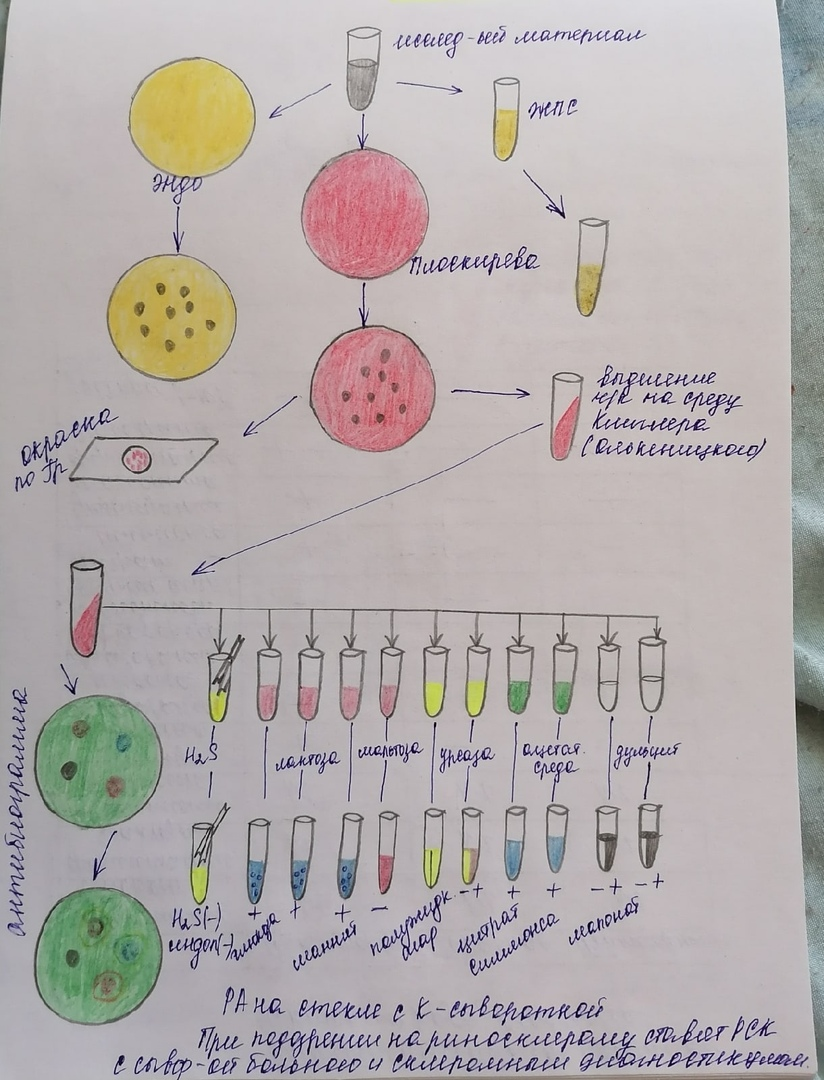 исслед-ый материал
ЖПС
Эндо
Плоскирева
выделение
ч/к на среду
Клиглера
(Олькеницкого)
окраска
по Гр
антибиограмма
H2S
лактоза
мальтоза
уреаза
ацетат.
среда
дульцит
+ + + - -+ + + -+ -+
H2S(-)
индол(-)
глюкоза
маннит
полужидк.
агар
цитрат
Симмонса
малонат
РА на стекле с К-сывороткой
При подозрении на риносклерому ставят РСК
с сывор-ой больного и склеромным диагностикумом.